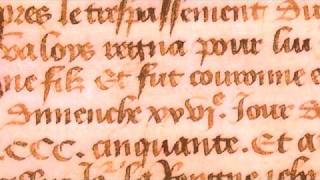 pres le trespassement du
valoys regna pour lui
ne filz Et fut couronne e
dimenche xxvi.e Jour d
CCC. cinquante. Et a